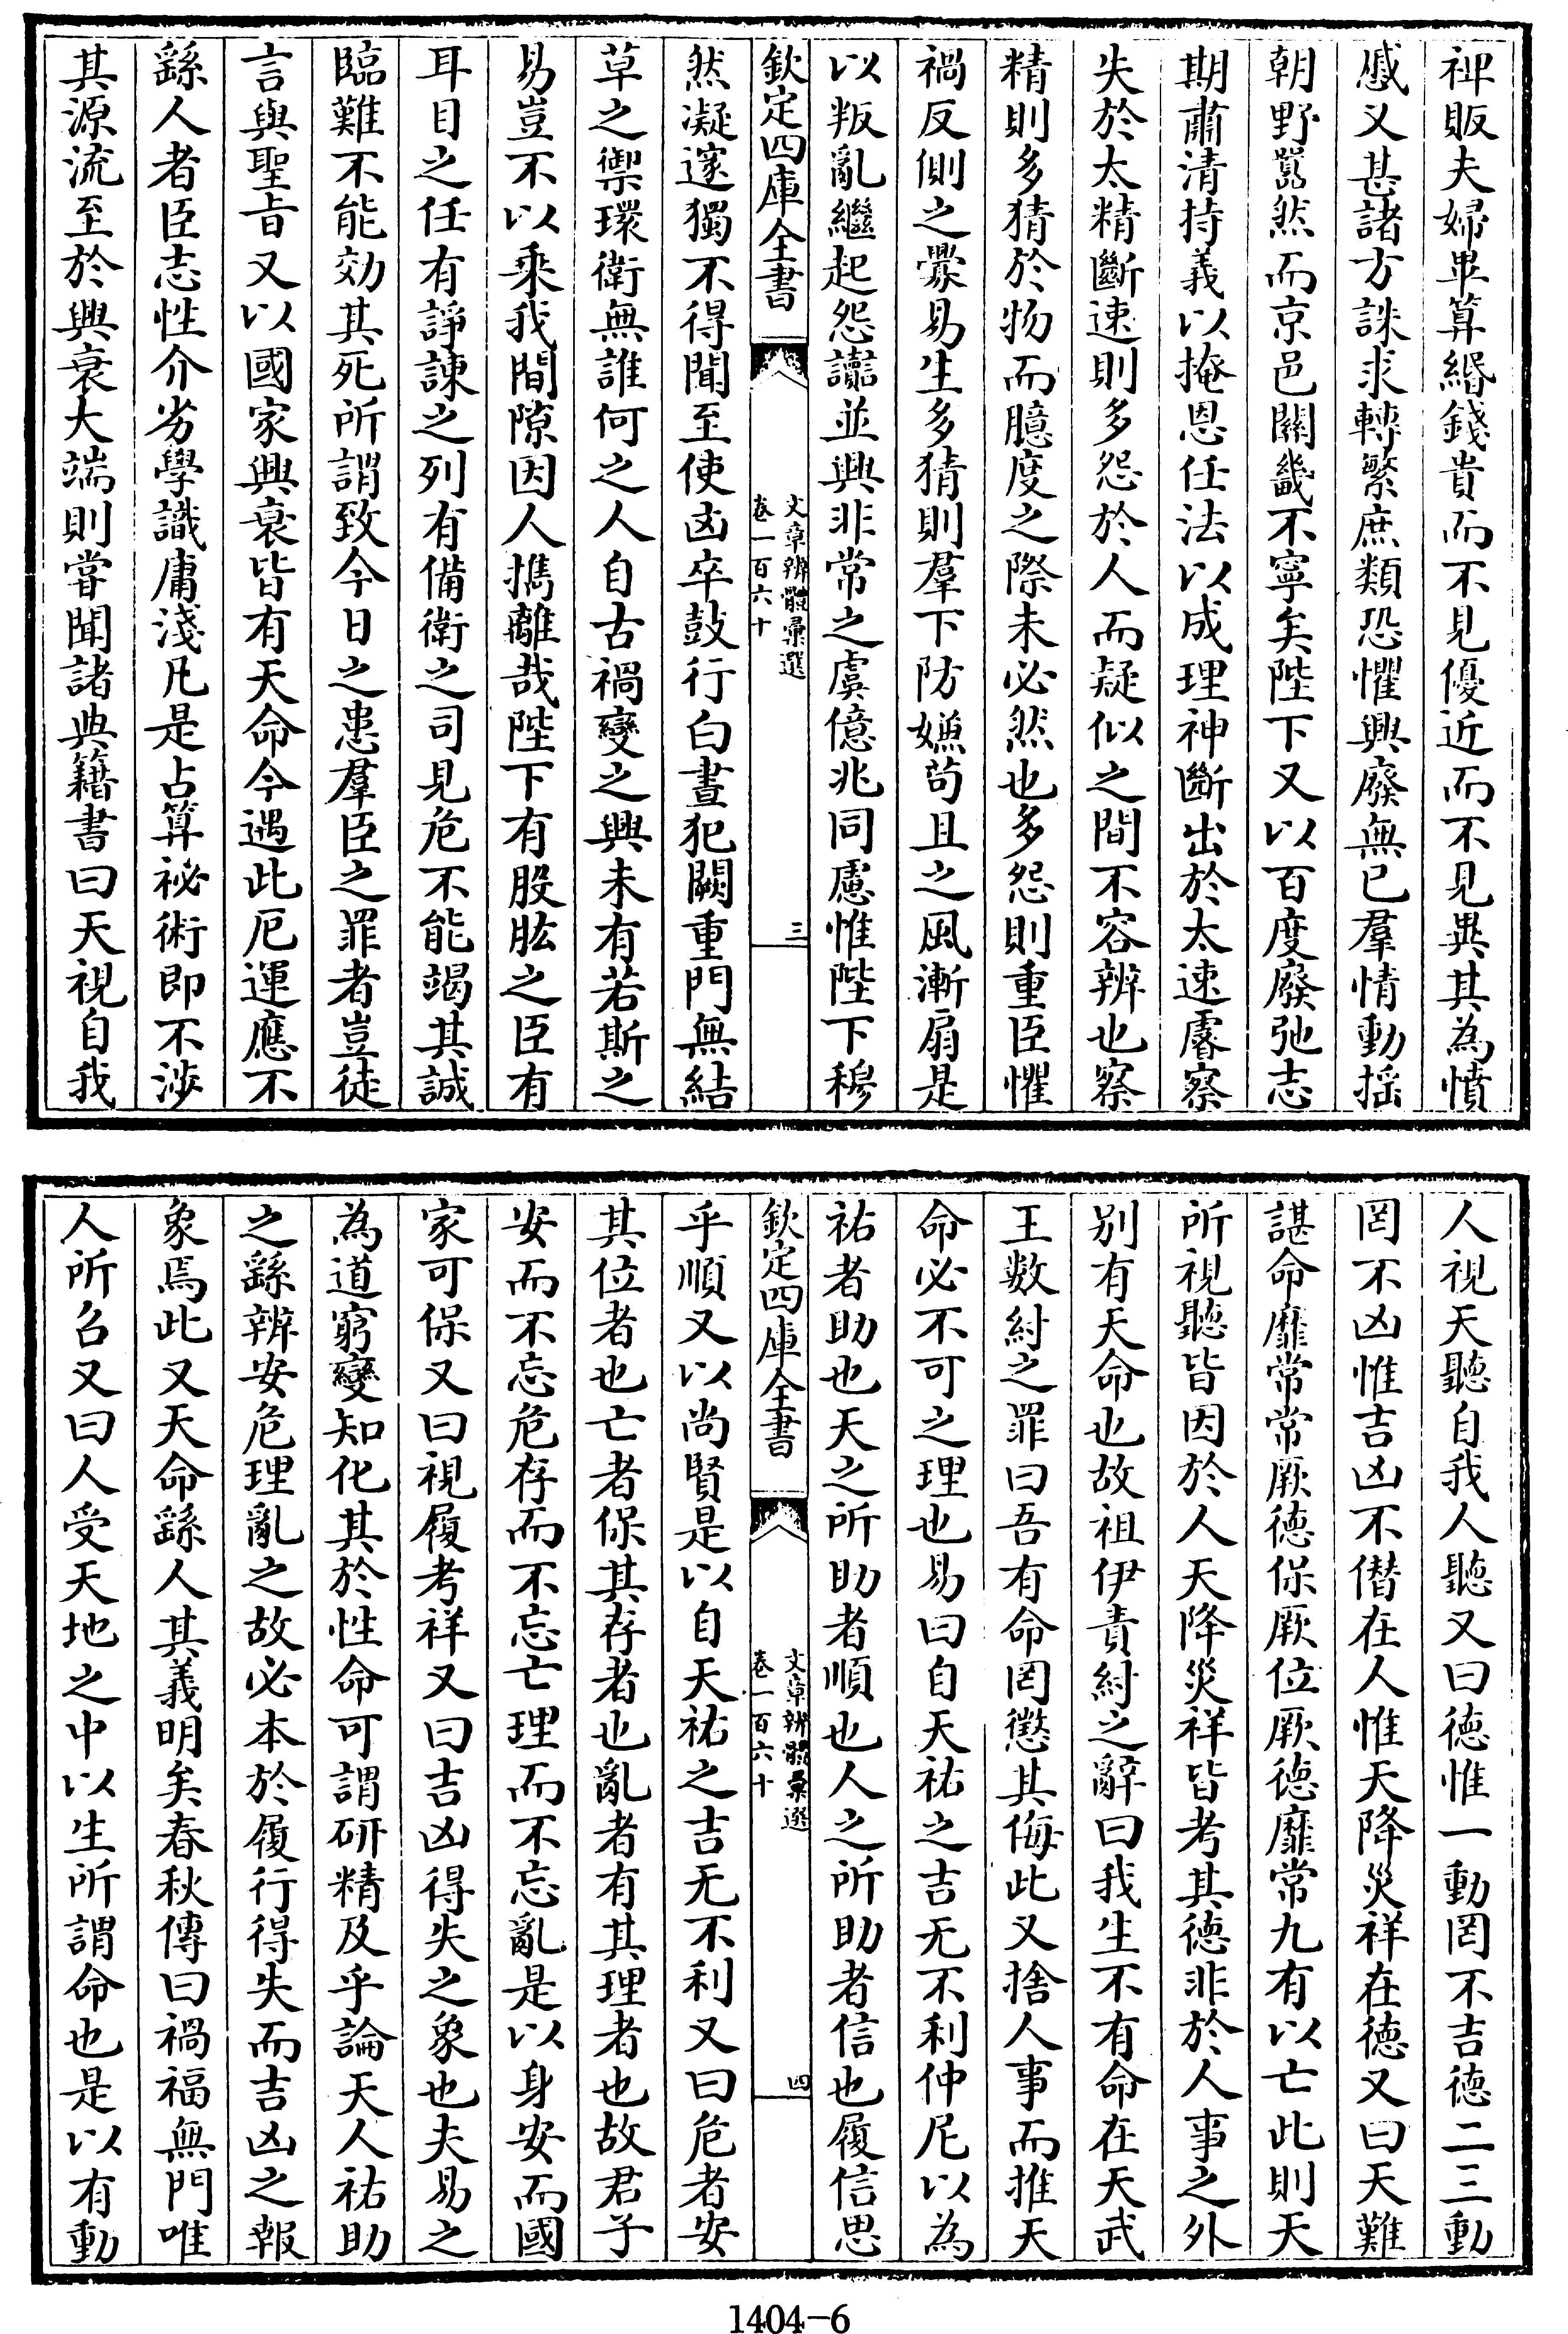 裨販夫婦畢算緡錢貴而不見優近而不見異其為憤
慼又甚諸方誅求轉繁庶類恐懼興廢無已羣情動揺
朝野嚣然而京邑關畿不寧矣陛下又以百度廢弛志
期肅清持義以掩恩任法以成理神斷出於太速睿察
失於太精斷速則多怨於人而疑似之間不容辨也察
精則多猜於物而臆度之際未必然也多怨則重臣懼
禍反側之釁易生多猜則羣下防嫌苟且之風漸扇是
以叛亂繼起怨讟並興非常之虞億兆同慮惟陛下穆
欽定四庫全書
文章辨體彚選
卷一百六十
三
然凝邃獨不得聞至使凶卒鼓行白晝犯闕重門無結
草之禦環衛無誰何之人自古禍變之興未有若斯之
易豈不以乘我間隙因人攜離哉陛下有股肱之臣有
耳目之任有諍諫之列有備衛之司見危不能竭其誠
臨難不能効其死所謂致今日之患羣臣之罪者豈徒
言與聖㫖又以國家興衰皆有天命今遇此厄運應不
繇人者臣志性介劣學識庸淺凡是占算祕術即不渉
其源流至於興衰大端則嘗聞諸典籍書曰天視自我
人視天聽自我人聽又曰徳惟一動罔不吉徳二三動
罔不凶惟吉凶不僭在人惟天降災祥在徳又曰天難
諶命靡常常厥徳保厥位厥徳靡常九有以亡此則天
所視聽皆因於人天降災祥皆考其徳非於人事之外
别有天命也故祖伊責紂之辭曰我生不有命在天武
王數紂之罪曰吾有命罔懲其侮此又捨人事而推天
命必不可之理也易曰自天祐之吉无不利仲尼以為
祐者助也天之所助者順也人之所助者信也履信思
欽定四庫全書
文章辨體彚選
卷一百六十
四
乎順又以尚賢是以自天祐之吉无不利又曰危者安
其位者也亡者保其存者也亂者有其理者也故君子
安而不忘危存而不忘亡理而不忘亂是以身安而國
家可保又曰視履考祥又曰吉凶得失之象也夫易之
為道窮變知化其於性命可謂研精及乎論天人祐助
之繇辨安危理亂之故必本於履行得失而吉凶之報
象焉此又天命繇人其義明矣春秋傳曰禍福無門唯
人所召又曰人受天地之中以生所謂命也是以有動
1404-6